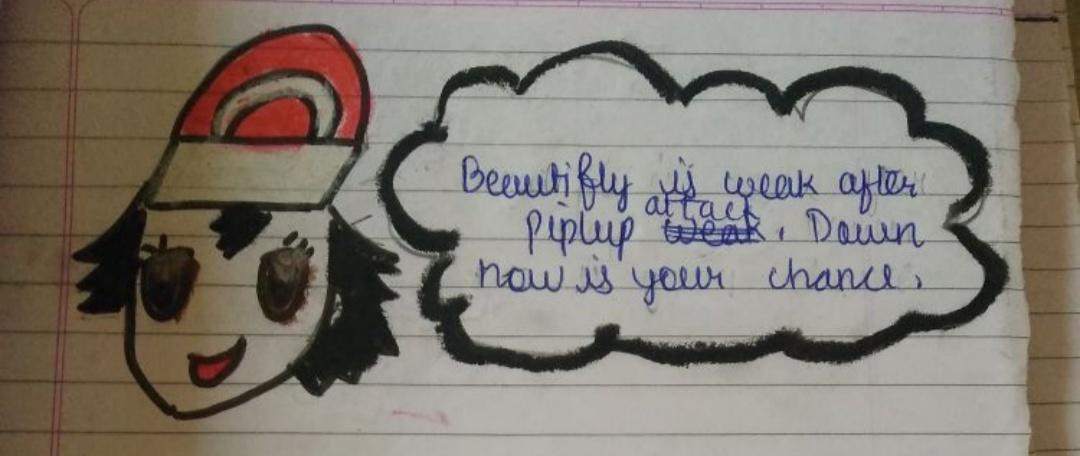 Beautifly is weak after
piplup attack. Dawn
now is your chance.